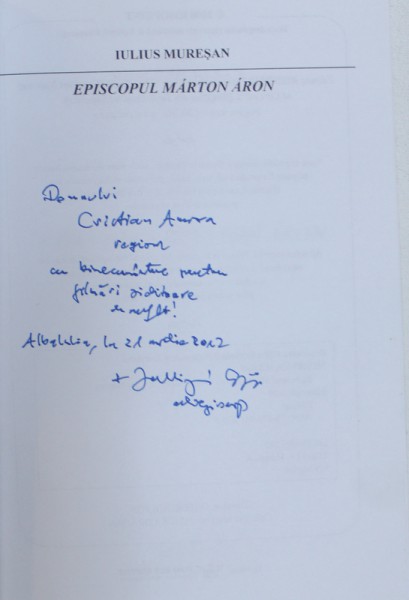 IULIUS MUREȘAN
EPISCOPUL MÁRTON ÁRON
Domnului
Cristian Amza
regizor
cu binecuvântare pentru
filmări ziditoare
de suflet!
Alba Iulia, la 21 2012
+ Jakubinyi György
arhiepiscop